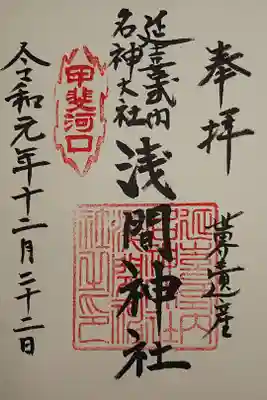 奉拝
世界遺産
延喜式内
名神大社
浅間神社
甲斐河口
令和元年十二月二十二日